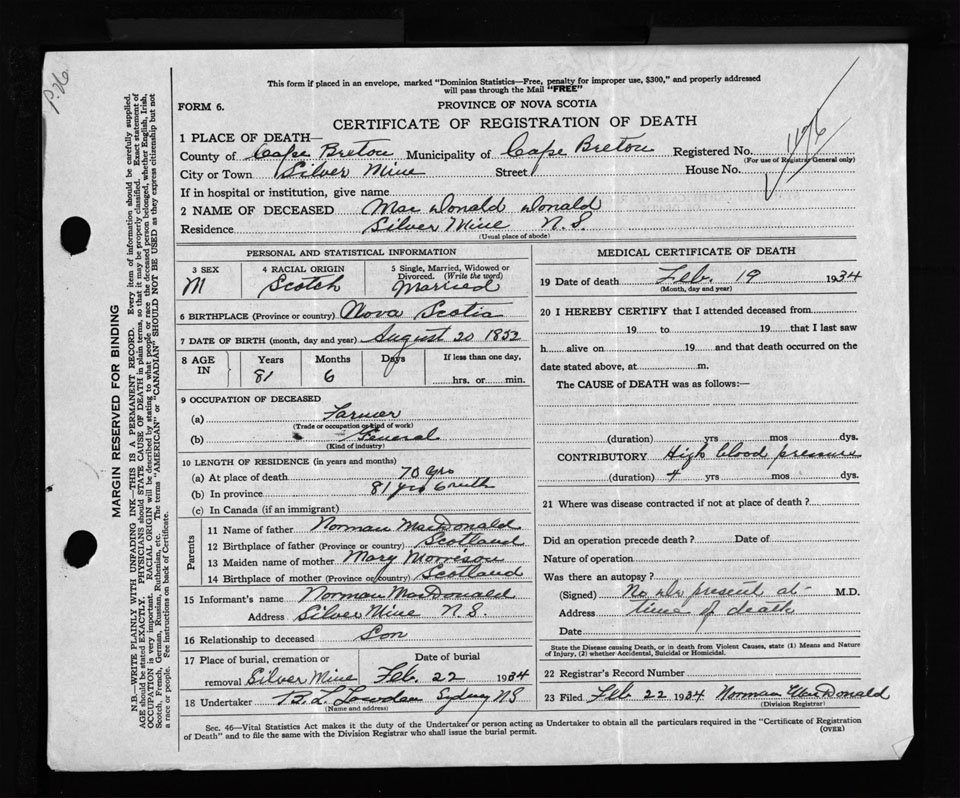 P. 76
This form if placed in an envelope, marked "Dominion Statistics—Free, penalty for improper use, $300," and properly addressed
will pass through the Mail "FREE"
FORM 6.
PROVINCE OF NOVA SCOTIA
CERTIFICATE OF REGISTRATION OF DEATH
1 PLACE OF DEATH—
County of Cape Breton Municipality of Cape Breton Registered No.
(For use of Registrar General only)
City or Town Silver Mine Street House No.
If in hospital or institution, give name
2 NAME OF DECEASED Mac Donald Donald
Residence Silver Mine N.S.
(Usual place of abode)
PERSONAL AND STATISTICAL INFORMATION
3 SEX M
4 RACIAL ORIGIN Scotch
5 Single, Married, Widowed or
Divorced. (Write the word)
Married
6 BIRTHPLACE (Province or country) Nova Scotia
7 DATE OF BIRTH (month, day and year) August 20 1852
8 AGE IN Years Months Days If less than one day,
81 6 hrs. or min.
9 OCCUPATION OF DECEASED
(a) Farmer
(Trade or occupation or kind of work)
(b) General
(Kind of industry)
10 LENGTH OF RESIDENCE (in years and months)
(a) At place of death 70 yrs
(b) In province 81 yrs 6 mth
(c) In Canada (if an immigrant)
Parents
11 Name of father Norman MacDonald
12 Birthplace of father (Province or country) Scotland
13 Maiden name of mother Mary Morrison
14 Birthplace of mother (Province or country) Scotland
15 Informant's name Norman MacDonald
Address Silver Mine N.S.
16 Relationship to deceased Son
17 Place of burial, cremation or Date of burial
removal Silver Mine Feb. 22 1934
18 Undertaker B. L. Lowden Sydney NS
(Name and address)
MEDICAL CERTIFICATE OF DEATH
19 Date of death Feb. 19 1934
(Month, day and year)
20 I HEREBY CERTIFY that I attended deceased from
19 to 19 that I last saw
h alive on 19 and that death occurred on the
date stated above, at m.
The CAUSE of DEATH was as follows:—
(duration) yrs mos dys.
CONTRIBUTORY High blood pressure
(duration) 4 yrs mos dys.
21 Where was disease contracted if not at place of death?
Did an operation precede death? Date of
Nature of operation
Was there an autopsy?
(Signed) No Dr. present at M.D.
Address time of death
Date
State the Disease causing Death, or in death from Violent Causes, state (1) Means and Nature
of Injury, (2) whether Accidental, Suicidal or Homicidal.
22 Registrar's Record Number
23 Filed Feb 22 1934 Norman MacDonald
(Division Registrar)
Sec. 46—Vital Statistics Act makes it the duty of the Undertaker or person acting as Undertaker to obtain all the particulars required in the "Certificate of Registration
of Death" and to file the same with the Division Registrar who shall issue the burial permit.
(OVER)
MARGIN RESERVED FOR BINDING
N.B.—WRITE PLAINLY WITH UNFADING INK—THIS IS A PERMANENT RECORD. Every item of information should be carefully supplied.
AGE should be stated EXACTLY. PHYSICIANS should STATE CAUSE OF DEATH in plain terms, so that it may be properly classified. Exact statement of
OCCUPATION is very important. RACIAL ORIGIN will be described by stating to what people or race the deceased person belonged, whether English, Irish,
Scotch, French, German, Russian, Ruthenian, etc. The terms "AMERICAN" or "CANADIAN" SHOULD NOT BE USED as they express citizenship but not
a race or people. See instructions on back of Certificate.